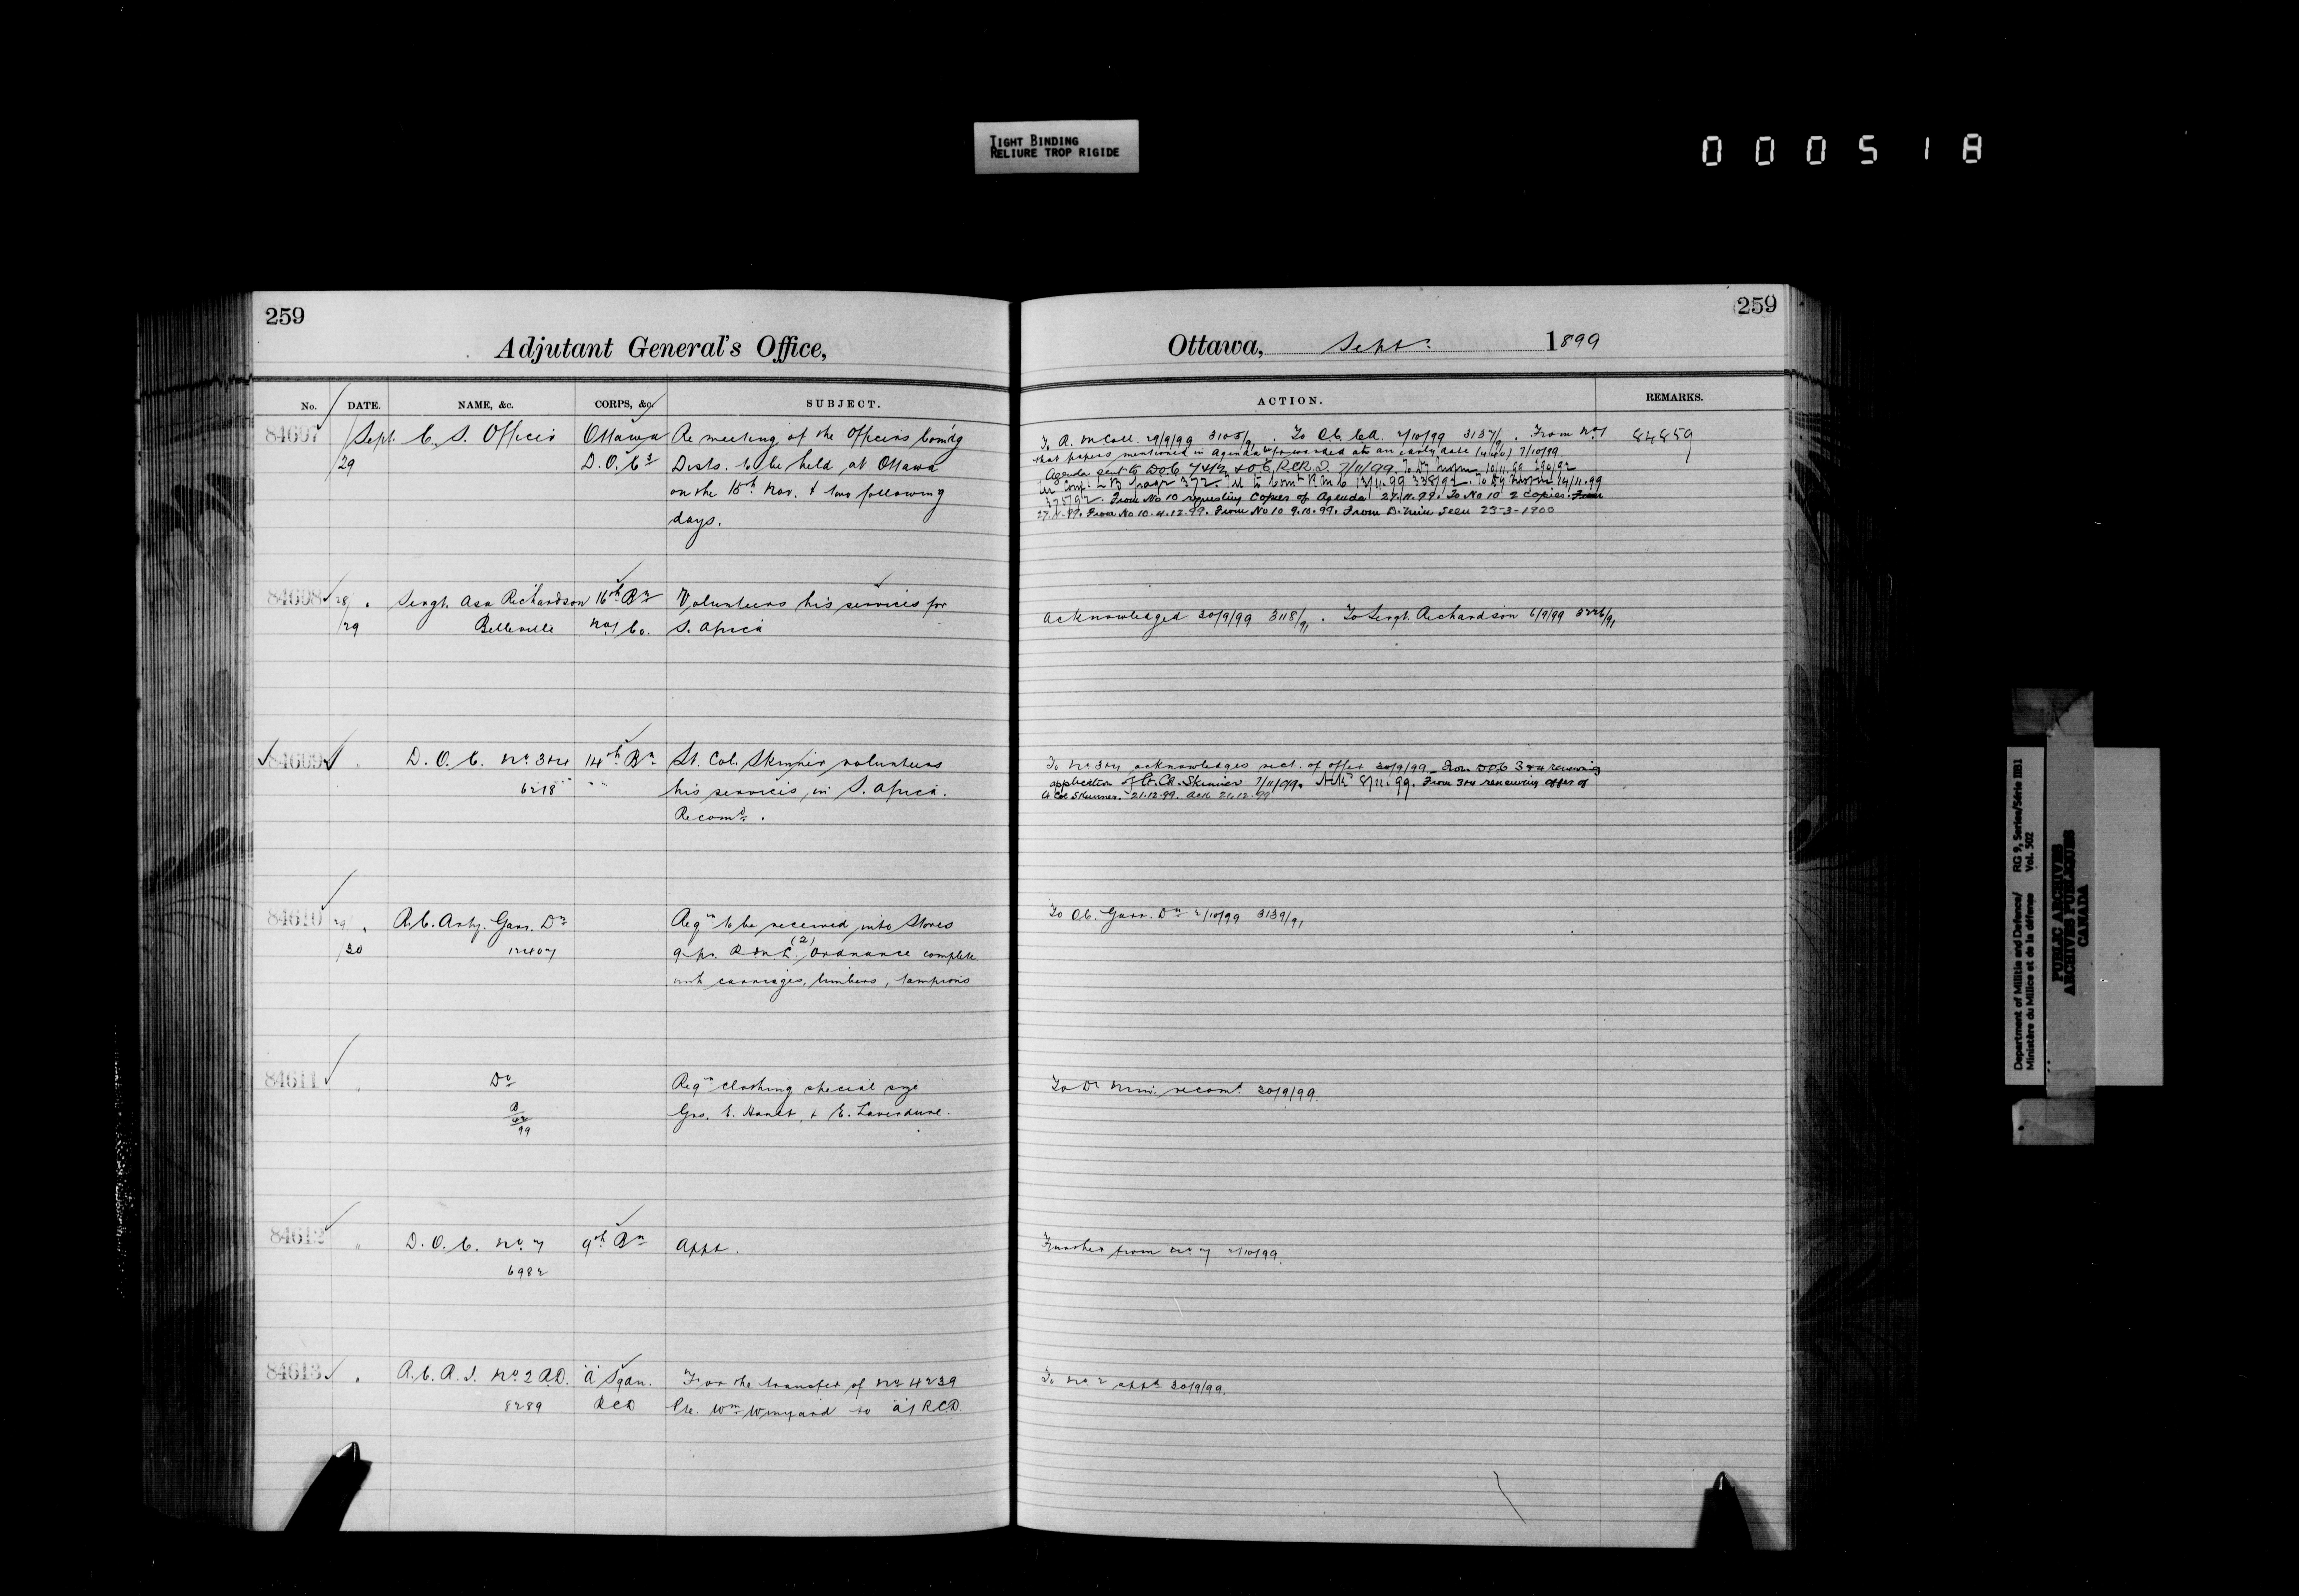 TIGHT BINDING
RELIURE TROP RIGIDE
000518
259
Adjutant General's Office,
No. DATE. NAME, &c. CORPS, &c. SUBJECT.
84607 Sept. C. S. Officer Ottawa Re meeting of the Officers Com'dg
/29 D.O.Cs Dists. to be held at Ottawa
on the 15th Nov. & two following
days.
84608 28/ " Sergt. Asa Richardson 16th Bn Volunteers his services for
/29 Belleville No 1 Co. S. Africa
84609 " D. O. C. No 3&4 14th Bn Lt. Col. Skinner volunteers
6218 his services in S. Africa.
Recomd.
84610 29/ " R.C. Arty. Garr. Dn Reqn to be received into Stores
/30 12407 9 pr. R.M.L. (2) Ordnance complete
with carriages, limbers, tampions
84611 " Do Reqn clothing special size
Grs. E. & E. Laverdure.
99
84612 " D. O. C. No 7 9th Bn Appt.
6982
84613 " A.C.A.S. No 2 A.D. "A" Sqdn. For the transfer of No 4239
8289 RCD Pte. Wm Winyard to "A" R.C.D.
259
Ottawa, Septr 1899
ACTION. REMARKS.
To R. McCall 29/9/99 3105/91. To Ch. C.A. 2/10/99 3137/91. From No 1 84859
that papers mentioned in Agenda be forwarded at an early date (440) 7/10/99
Agenda sent to DOC & O.C, R.C.R.I. 7/11/99. 10/11.99 290/92
372. 13/11.99 338/92. 14/11.99
375/92. From No 10 requesting Copies of Agenda 27.11.99. To No 10 2 copies. From
27.11.99. From No 10. 4.12.99. From No 10 9.10.99. From D. Min Seen 23-3-1900
Acknowledged 30/9/99 3118/91. To Sergt. Richardson 6/9/99 3226/91
To No 3&4 acknowledges rect. of offer 30/9/99. From DOC 3&4 renewing
application of Lt. Col. Skinner 7/11/99. Ackd 8/11.99. From 3&4 renewing offer of
Lt Col Skinner. 21.12.99. Ack 21.12.99
To Ch. Garr. Dn 2/10/99 3139/91
To Dr Min. recomd 30/9/99.
Further from No 7 2/10/99.
To No 2 appd 30/9/99.
Department of Militia and Defence/ RG 9, Series/Série IIB1
Ministère du Milice et de la défense Vol. 502
PUBLIC ARCHIVES
ARCHIVES PUBLIQUES
CANADA